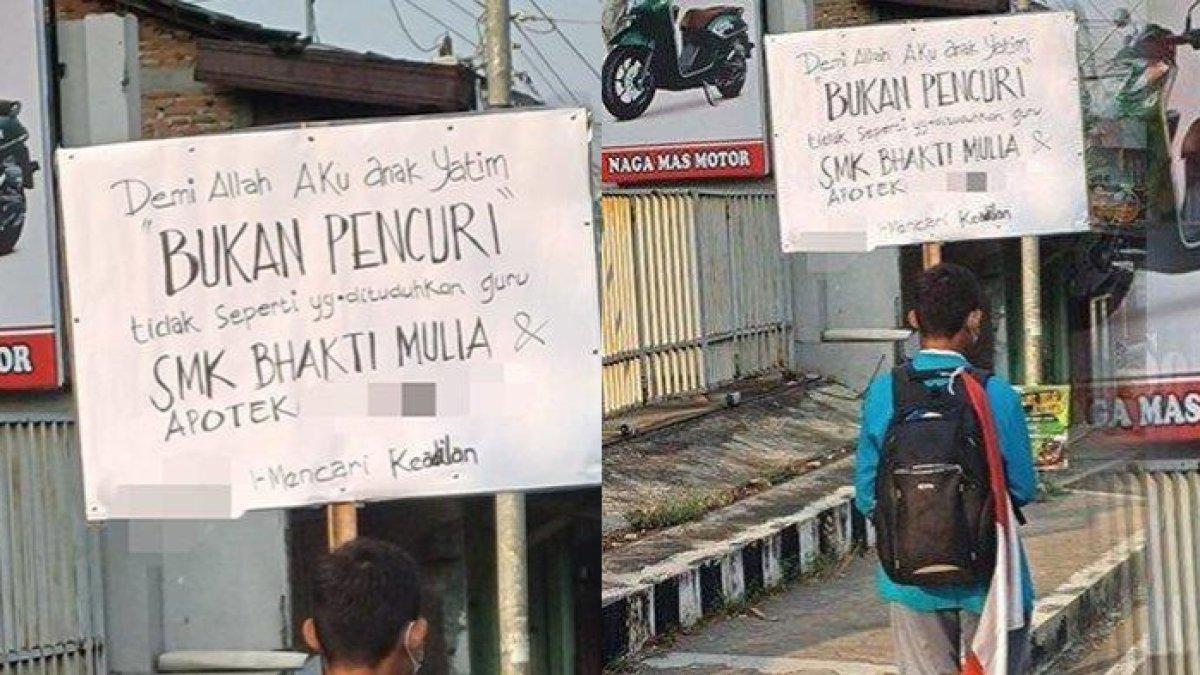 OR
Demi Allah AKu anak Yatim
"BUKAN PENCURI"
tidak seperti yg dituduhkan guru
SMK BHAKTI MULIA &
APOTEK
Mencari Keadilan
NAGA MAS MOTOR
Demi Allah AKu anak Yatim
"BUKAN PENCURI"
tidak seperti yg dituduhkan guru
SMK BHAKTI MULIA &
APOTEK
Mencari Keadilan
GA MAS